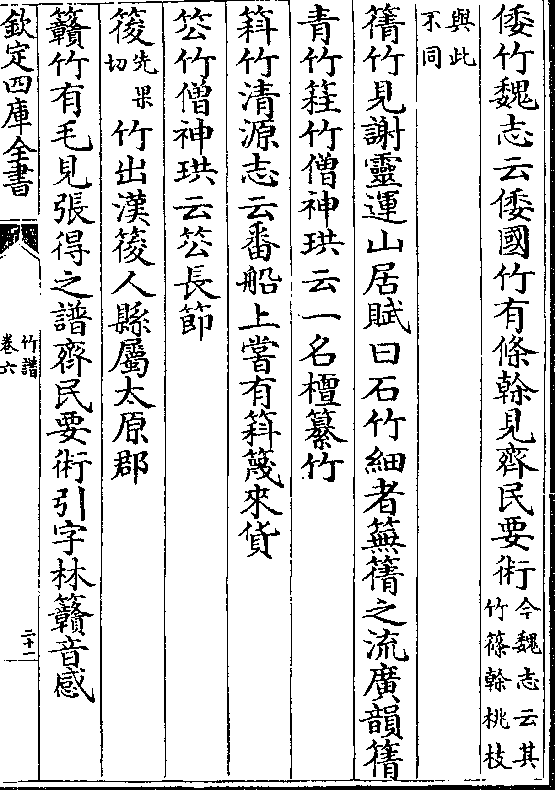 倭竹魏志云倭國竹有條榦見齊民要術今魏志云其竹篠榦桃枝
與此不同
簵竹見謝靈運山居賦曰石竹細者蕪簵之流廣韻簵
青竹䇬竹僧神珙云一名檀纂竹
䈏竹清源志云番船上嘗有䈏篾來貨
䇗竹僧神珙云䇗長節
䈇先果切竹出漢䈇人縣屬太原郡
籫竹有毛見張得之譜齊民要術引字林籫音感
欽定四庫全書
竹譜
卷六
二十一